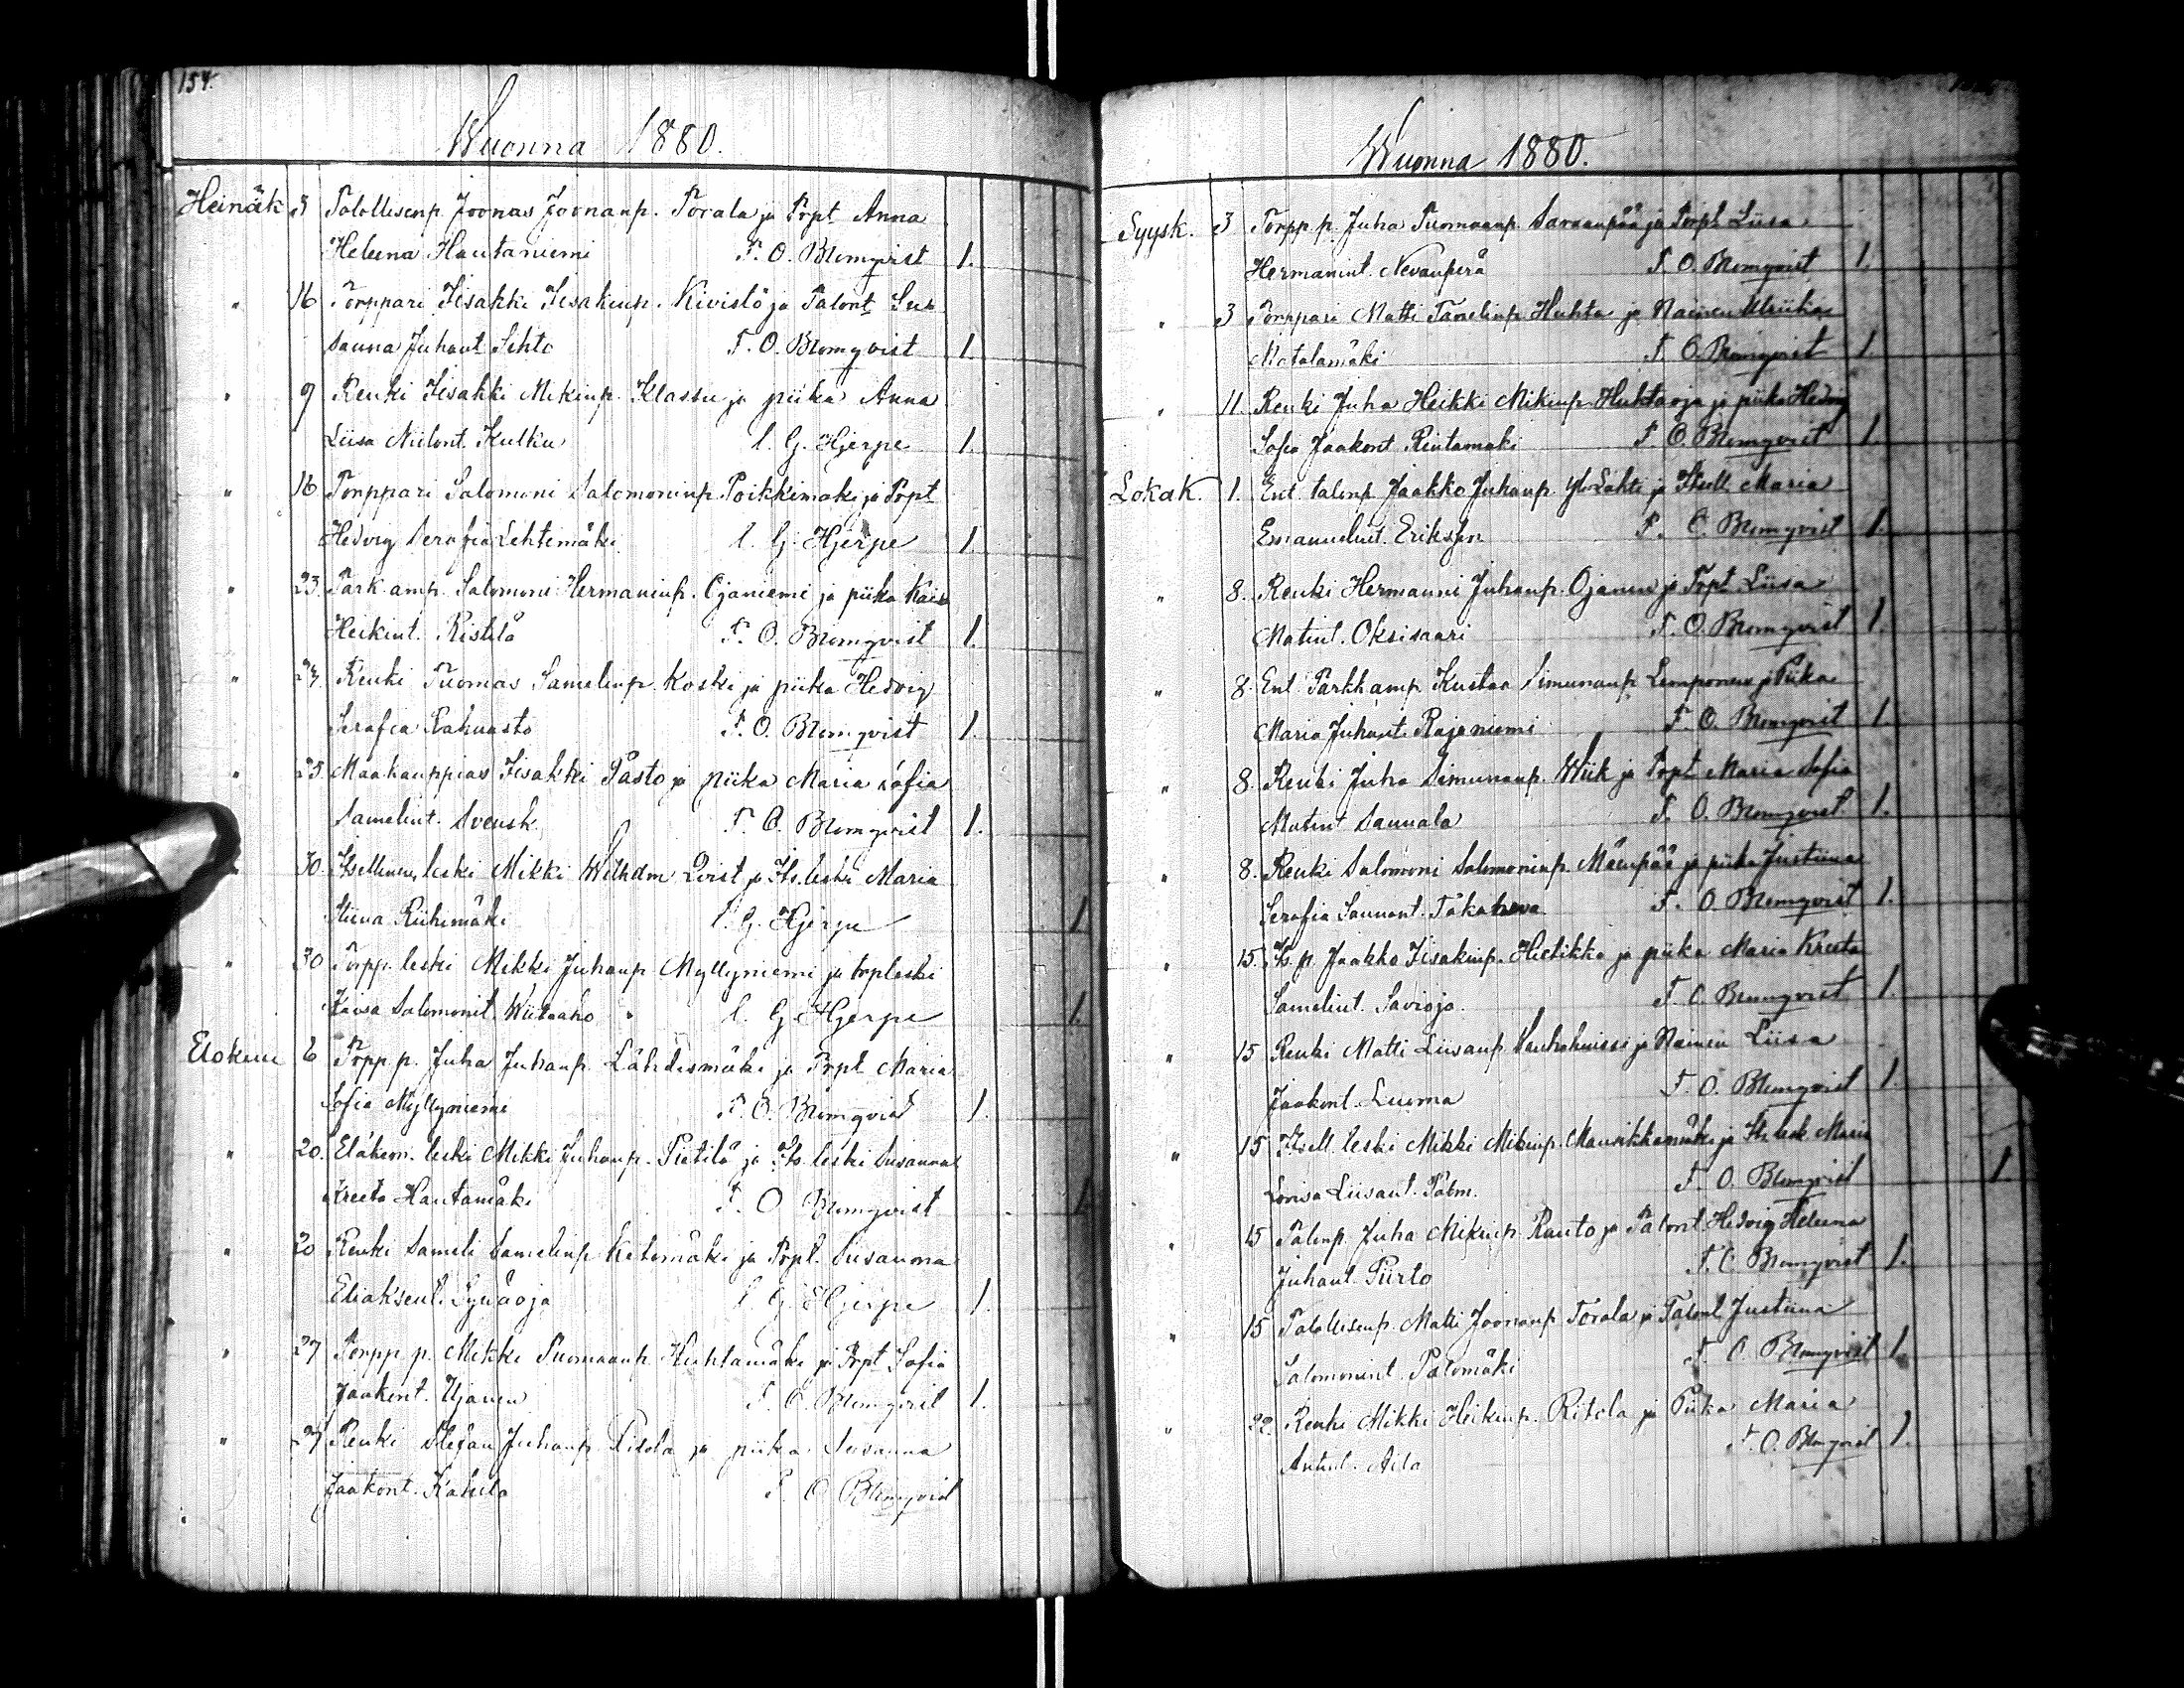 154.
Wuonna 1880.
Heinäk 9 Talollisenp. Joonas Joonanp. Torala ja Trpt Anna
Heleena Hautaniemi F. O. Blomqvist 1.
" 16 Torppari Iisakki Iisakinp. Kivistö ja Talont Su=
sanna Juhant Lehto F. O. Blomqvist 1.
" 9 Renki Iisakki Mikinp. Klassu ja piika Anna
Liisa Niilont. Kulku l. G. Hjerpe 1.
" 16 Torppari Salomoni Salomoninp. Poikkimäki ja Trpt
Hedvig Serafia Lehtimäki l. G. Hjerpe 1.
" 23. Park. amp. Salomoni Hermaninp. Ojaniemi ja piika Kaisa
Heikint. Ristilä F. O. Blomqvist 1.
" Renki Tuomas Samelinp. Koski ja piika Hedvig
Serafia Rakuasto F. O. Blomqvist 1.
" 25. Maakauppias Iisakki Pästo ja piika Maria Sofia
Samelint. Svensk F. O. Blomqvist 1.
" 30. Itsellinen leski Mikki Wilhelm Qvist ja Its. leski Maria
Stiina Riihimäki l. G. Hjerpe 1.
" 30 Torpp. leski Mikki Juhanp Myllyniemi ja trpleski
Kaisa Salomonit. Wiitaaho l. G. Hjerpe 1.
Elokuu 6 Torpp. p. Juha Juhanp. Lähdesmäki ja Trpt Maria
Sofia Myllyniemi F. O. Blomqvist 1.
" 20. Eläkem. leski Mikki Juhanp. Pietilä ja Its. leski Susanna
Kreeta Hautamäki F. O. Blomqvist 1.
" 20 Renki Sameli Samelinp. Ketomäki ja Trpt. Susanna
Eliaksent. Sywäoja l. G. Hjerpe 1.
" 27 Torpp. p. Mikki Tuomaanp. Huhtamäki ja Trpt Sofia
Jaakont. Ujanen F. O. Blomqvist 1.
" 27 Renki Stefan Juhanp. ja piika Susanna
Jaakont. F. O. Blomqvist
Wuonna 1880.
Syysk. 3 Torpp. p. Juha Tuomaanp. Savaanpää ja Torpt Liisa
Hermanint. Nevanperä F. O. Blomqvist 1.
" 3 Torppari Matti Tanelinp. Huhta ja Nainen Ulriika
Matalamäki F. O. Blomqvist 1.
" 11. Renki Juha Heikki Mikinp. Huhtaoja ja piika Hedvig
Sofia Jaakont Rintamäki F. O. Blomqvist 1.
Lokak. 1. Ent. talonp. Jaakko Juhanp. Yli-Lahti ja Itsell. Maria
Emanuelint. Eriksson F. O. Blomqvist 1.
" 8. Renki Hermanni Juhanp. Ojanen ja Trpt Liisa
Matint. Oksisaari F. O. Blomqvist 1.
" 8. Ent. Parkkamp. Kustaa Simunanp. Lemponen ja Piika
Maria Juhant. Rajaniemi F. O. Blomqvist 1.
" 8. Renki Juha Simunanp. Wiik ja Trpt Maria Sofia
Matint Saunala F. O. Blomqvist 1.
" 8. Renki Salomoni Salomoninp. Mäenpää ja piika Justiina
Serafia F. O. Blomqvist 1.
" 15. Its. p. Jaakko Iisakinp. Hietikko ja piika Maria Kreeta
Samelint. Savioja. F. O. Blomqvist 1.
" 15 Renki Matti Liisanp. ja Nainen Liisa
Jaakont. Luoma F. O. Blomqvist 1.
" 15 Itsell. leski Mikki Mikinp. Mansikkamäki ja Its. lesk. Maria
Lovisa Liisant. Palm. F. O. Blomqvist 1.
" 15 Talonp. Juha Mikinp. Rauto ja Talont. Hedvig Heleena
Juhant. Piirto F. O. Blomqvist 1.
" 15 Talollisenp. Matti Joonanp. Torala ja Talont. Justiina
Salomonint. Palomäki F. O. Blomqvist 1.
" 22. Renki Mikki Heikinp. Ritola ja Piika Maria
Antint. Aila F. O. Blomqvist 1.